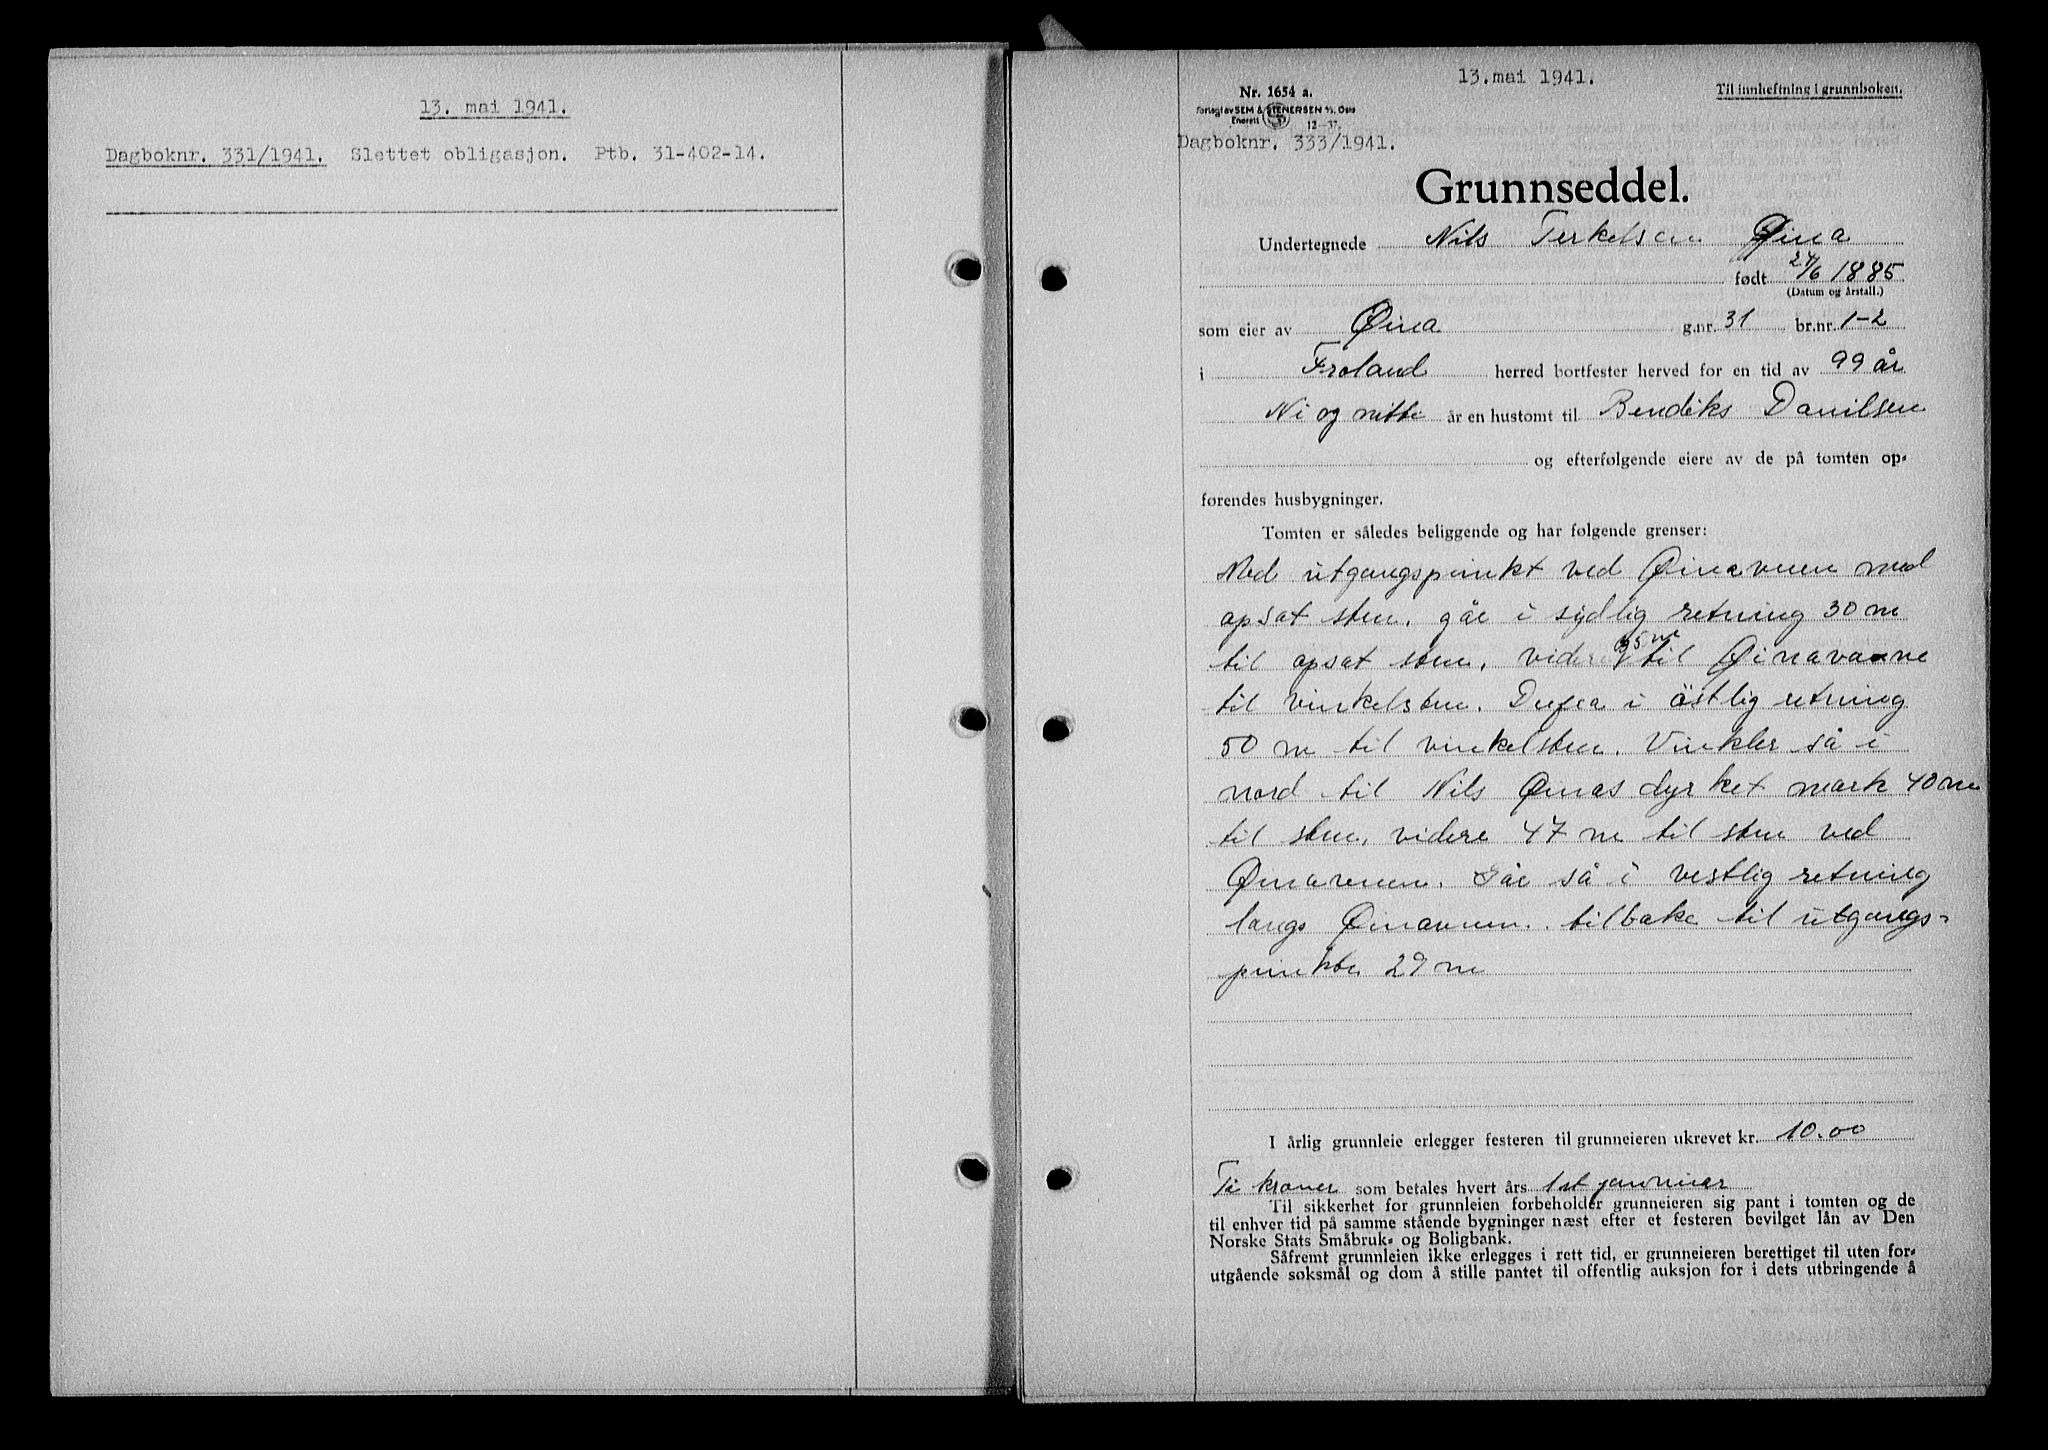 13. mai 1941.
Dagboknr. 331/1941. Slettet obligasjon. Ptb. 31-402-14.
13.mai 1941.
Nr. 1654 a.
Til innheftning i grunnboken.
Forlagt av SEM & STENERSEN A/S, Oslo
Enerett 12-37.
Dagboknr. 333/1941.
Grunnseddel.
Undertegnede Nils Terkelsen Øina
født 24/6 1885
(Datum og årstall.)
som eier av Øina g.nr. 31 br.nr. 1-2
i Froland herred bortfester herved for en tid av 99 år
Ni og nitti år en hustomt til Bendiks Danilsen
og efterfølgende eiere av de på tomten op-
førendes husbygninger.
Tomten er således beliggende og har følgende grenser:
Med utgangspunkt ved Øinaveien med
opsat sten. går i sydlig retning 30 m
til opsat sten. videre 35 m til Øinavanne
til vinkelsten. Derfra i östlig retning
50 m til vinkelsten. Vinkler så i
nord til Nils Øinas dyrket mark 40 m
til sten, videre 47 m til sten ved
Øinaveien. Går så i vestlig retning
langs Øinaveien. tilbake til utgangs-
punkte 29 m
I årlig grunnleie erlegger festeren til grunneieren ukrevet kr. 10.00
Ti kroner som betales hvert års 1st januar
Til sikkerhet for grunnleien forbeholder grunneieren sig pant i tomten og de
til enhver tid på samme stående bygninger næst efter et festeren bevilget lån av Den
Norske Stats Småbruk- og Boligbank.
Såfremt grunnleien ikke erlegges i rett tid, er grunneieren berettiget til uten for-
utgående søksmål og dom å stille pantet til offentlig auksjon for i dets utbringende å